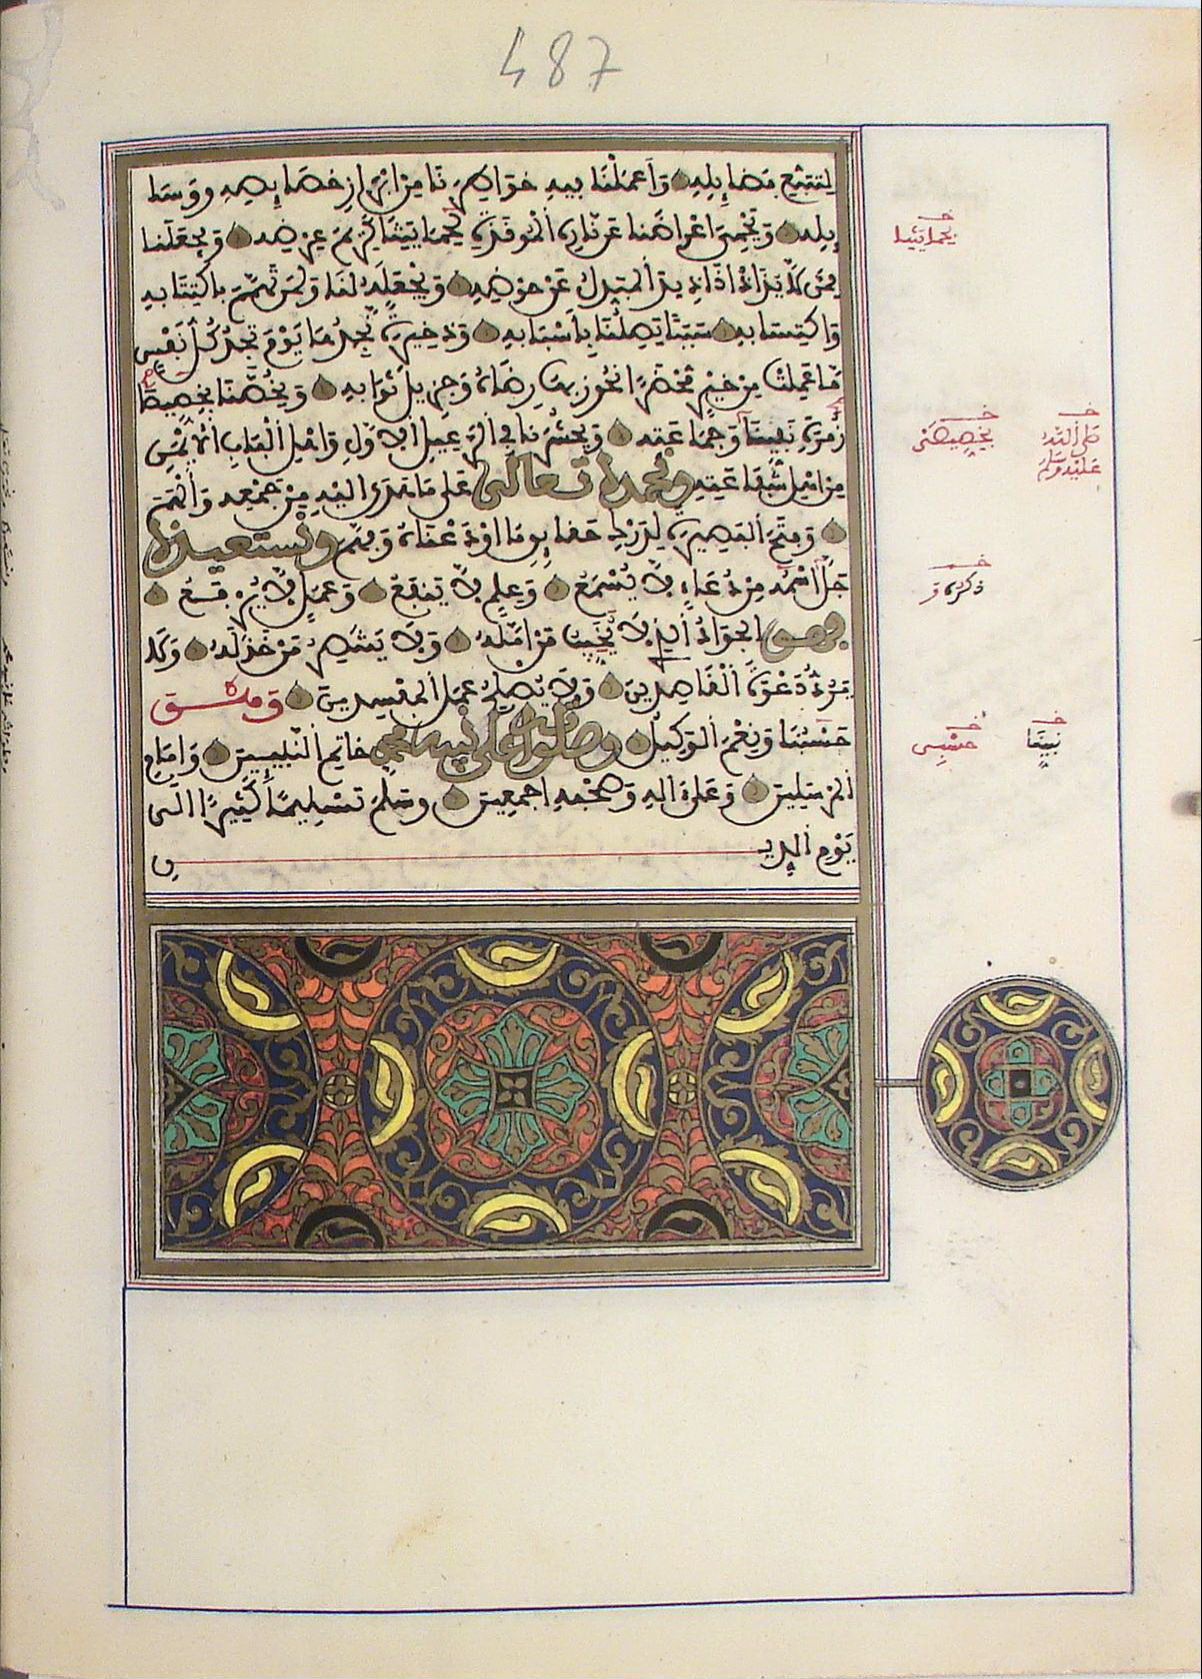 487
لتتبع فضايله وأعملنا فيه خواطرنا من ابراز خصايصه ووسا
يله ويحمي اعراضنا عن ناره الموقدة لحمايتنا كريم عرضه ويجعلنا
ممن لا يذاد اذا ذيد المبدل عن حوضه ويجعله لنا ولمن تهمم باكتتابه
واكتسابه سببا يصلنا بأسبابه وذخيرة نجدها يوم تجد كل نفس
ما عملت من خير محضرا نحوز بها رضاه وجزيل ثوابه ويخصنا بخصيصا
زمرة نبينا وجماعته ويحشرنا في الرعيل الاول واهل الباب الأيمن
من اهل شفاعته ونحمده تعالى على ما هدى اليه من جمعه وألهم
وفتح البصيرة لدرك حقايق ما اودعناه وفهم ونستعيذه
جل اسمه من دعاء لا يسمع وعلم لا ينفع وعمل لا يرفع
فهو الجواد الذي لا يخيب من أمله ولا ينتصر من خذله وكلا
يرد دعوة القاصدين ولا يصلح عمل المفسدين وهو
حسبنا ونعم الوكيل وصلواته على نبيه محمد خاتم النبيين وامام
المرسلين وعلى اله وصحبه اجمعين وسلم تسليما كثيرا الى
يوم الدين
يحمايتنا
بخصيصى
صلى الله
عليه وسلم
نبينا
حسبي